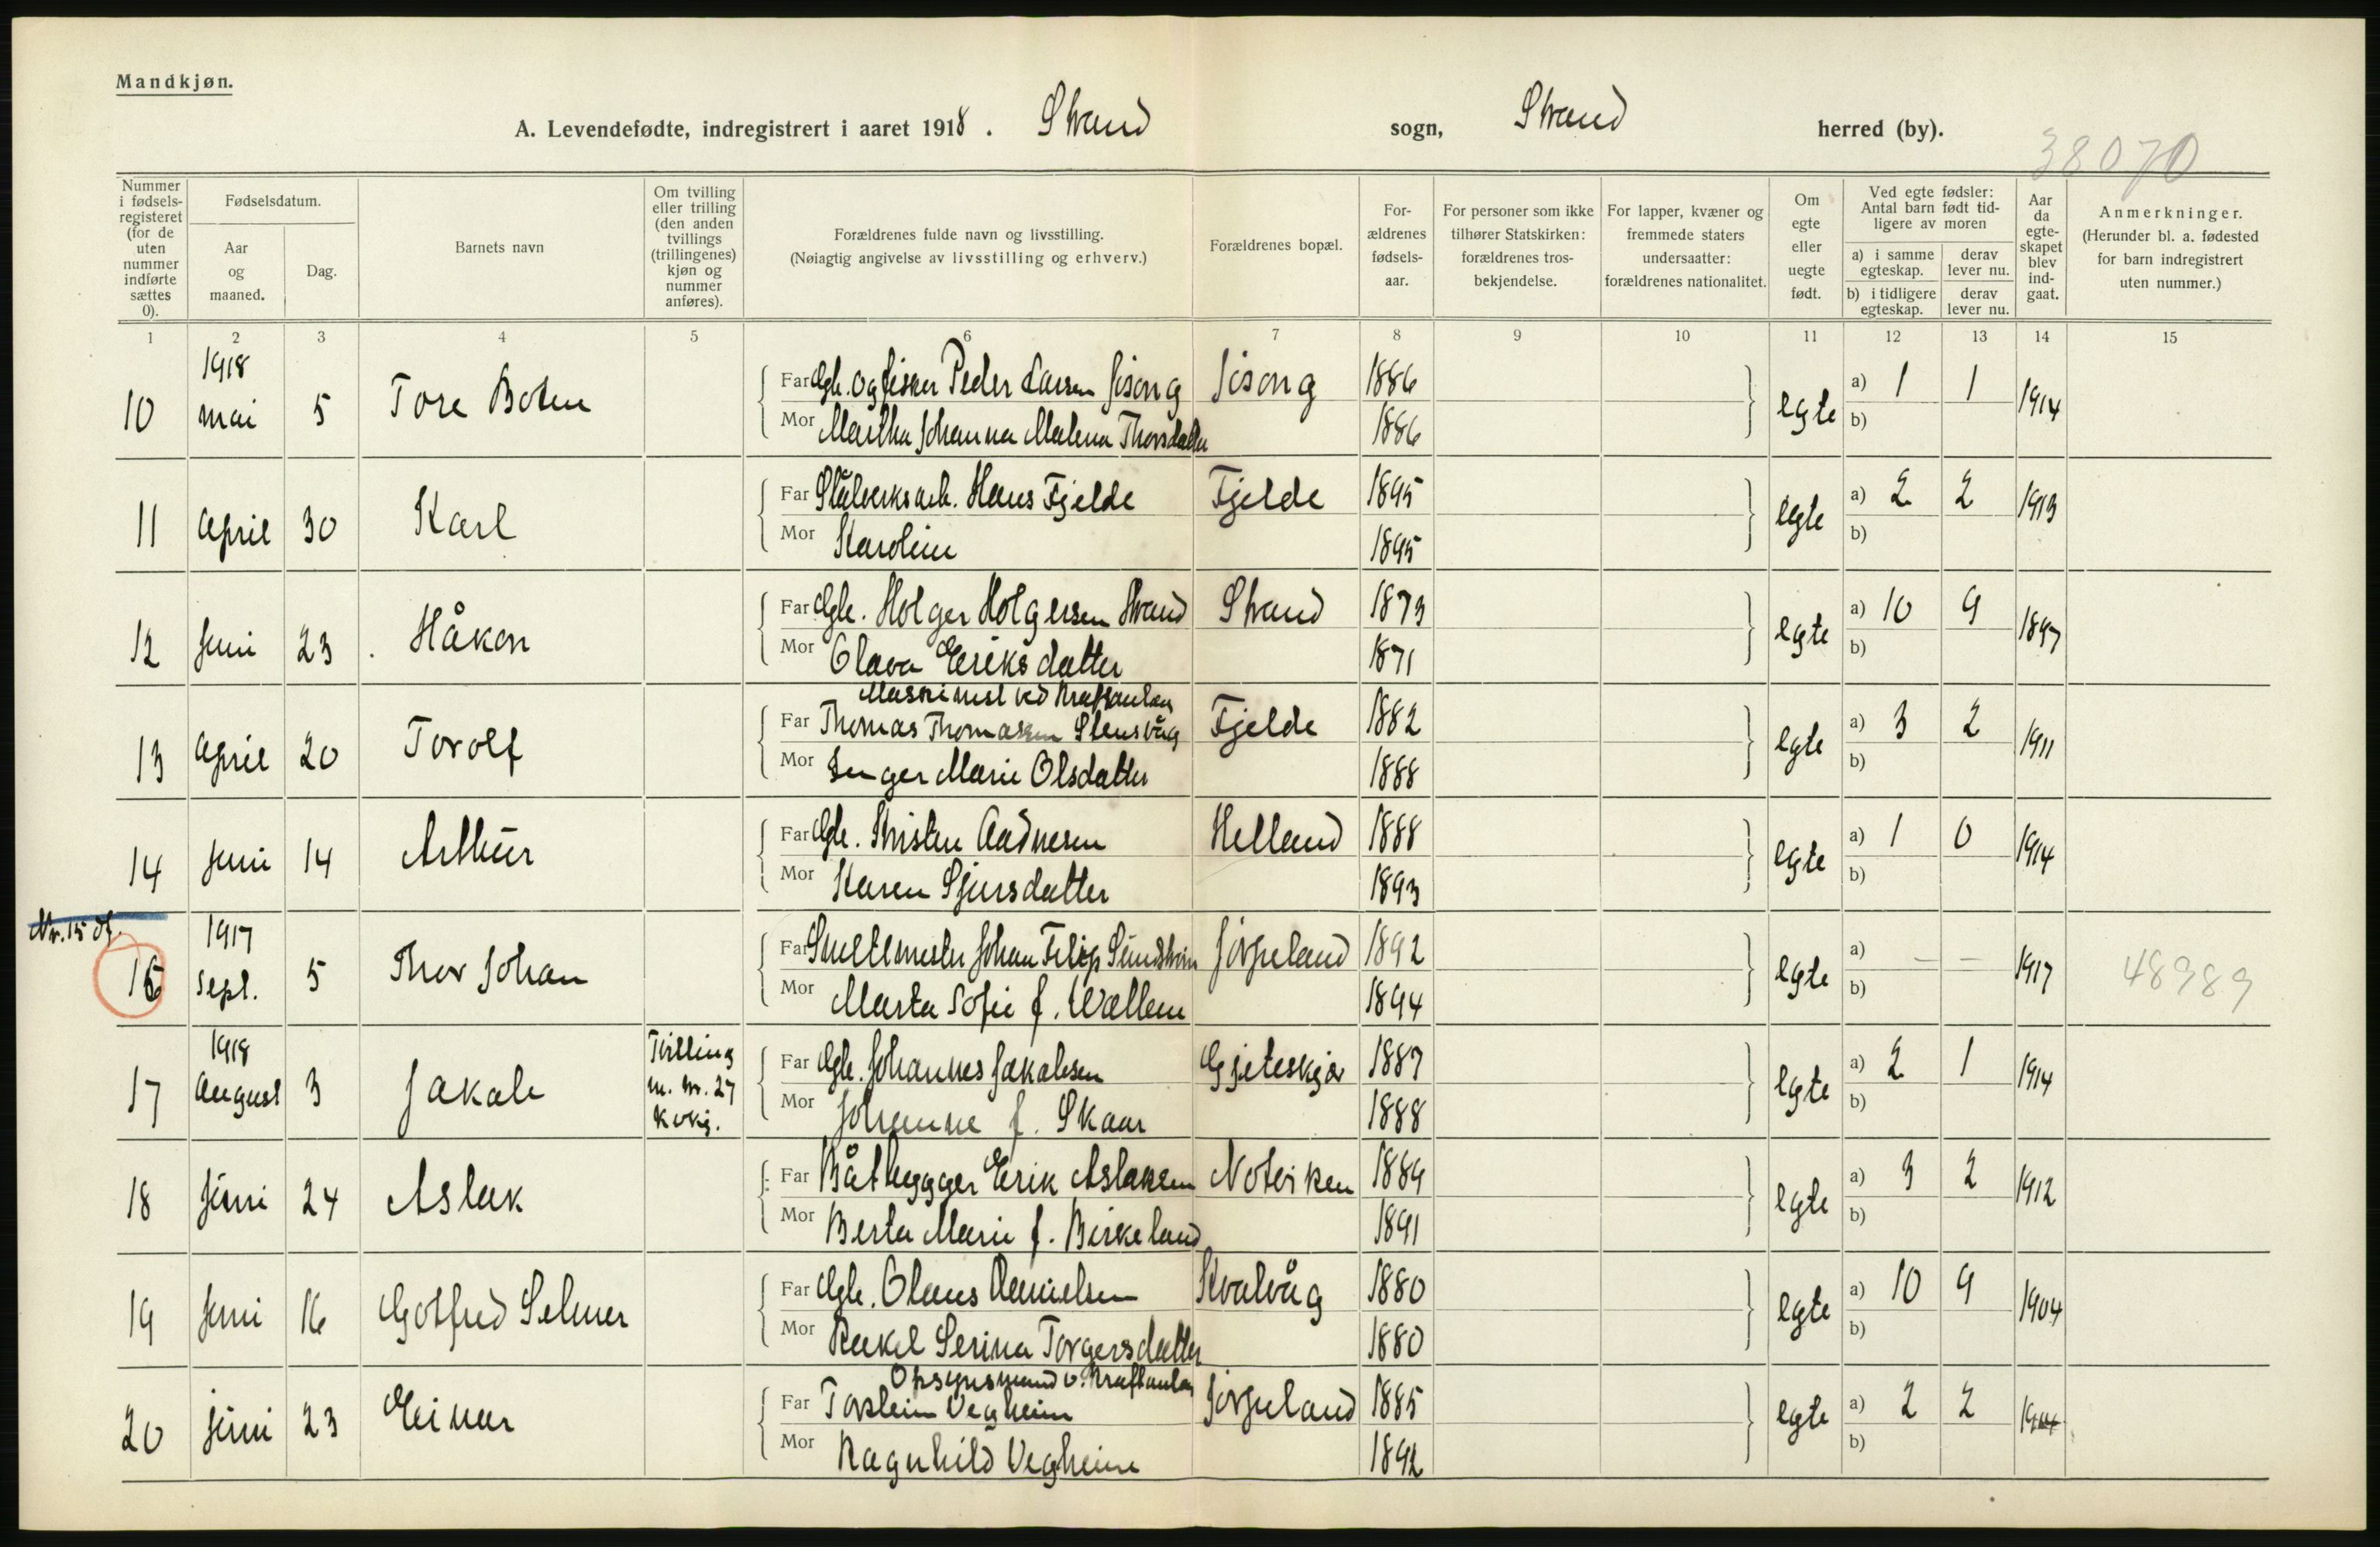 Mandkjøn.
A. Levendefødte, indregistrert i aaret 1918. Strand sogn, Strand herred (by).
38070
Nummer i fødsels-registeret (for de uten nummer indførte sættes 0).
Fødselsdatum.
Aar og maaned.
Dag.
Barnets navn
Om tvilling eller trilling (den anden tvillings (trillingenes) kjøn og nummer anføres).
Forældrenes fulde navn og livsstilling.
(Nøiagtig angivelse av livsstilling og erhverv.)
Forældrenes bopæl.
For-ældrenes fødsels-aar.
For personer som ikke tilhører Statskirken: forældrenes tros-bekjendelse.
For lapper, kvæner og fremmede staters undersaatter: forældrenes nationalitet.
Om egte eller uegte født.
Ved egte fødsler: Antal barn født tid-ligere av moren
a) i samme egteskap. derav lever nu.
b) i tidligere egteskap. derav lever nu.
Aar da egte-skapet blev ind-gaat.
Anmerkninger.
(Herunder bl. a. fødested for barn indregistrert uten nummer.)
1 2 3 4 5 6 7 8 9 10 11 12 13 14 15
1918
10 mai 5 Tore Far Gbr. og fisker Peder Larsen 1886 egte a) 1 1 1914
Mor Martha Johanna Malena Thorsdatter 1886 b)
11 April 30 Karl Far Stålverksarb. Hans Fjelde Fjelde 1895 egte a) 2 2 1913
Mor Karoline 1895 b)
12 Juni 23 Håkon Far Gbr. Holger Holgersen Strand Strand 1873 egte a) 10 9 1897
Mor Olava Eriksdatter 1871 b)
Maskinist ved Kraftanlæg
13 April 20 Torolf Far Thomas Thomassen Stensvåg Fjelde 1882 egte a) 3 2 1911
Mor Inger Marie Olsdatter 1888 b)
14 Juni 14 Arthur Far Gbr. Kristen Aadnesen Helland 1888 egte a) 1 0 1914
Mor Karen Sjursdatter 1893 b)
Nr. 15
1917
16 Sept. 5 Thor Johan Far Smeltemester Johan Filip Jørpeland 1892 egte a) - - 1917 48989
Mor Marta Sofie f. Wallem 1894 b)
1918
17 August 3 Jakob Tvilling m. nr. 27 kvkj. Far Gbr. Johannes Jakobsen Gjeteskjær 1887 egte a) 2 1 1914
Mor Johanne f. Skaar 1888 b)
18 Juni 24 Aslak Far Båtbygger Erik Aslaksen Notviken 1884 egte a) 3 2 1912
Mor Berta Marie f. Birkeland 1891 b)
19 Juni 16 Gotfred Selmer Far Gbr. Olaus Danielsen Kvalvåg 1880 egte a) 10 9 1904
Mor Rakel Serina Torgersdatter 1880 b)
Opsynsmand v. Kraftanlæg
20 Juni 23 Einar Far Torstein Vegheim Jørpeland 1885 egte a) 2 2
Mor Ragnhild Vegheim 1892 b)